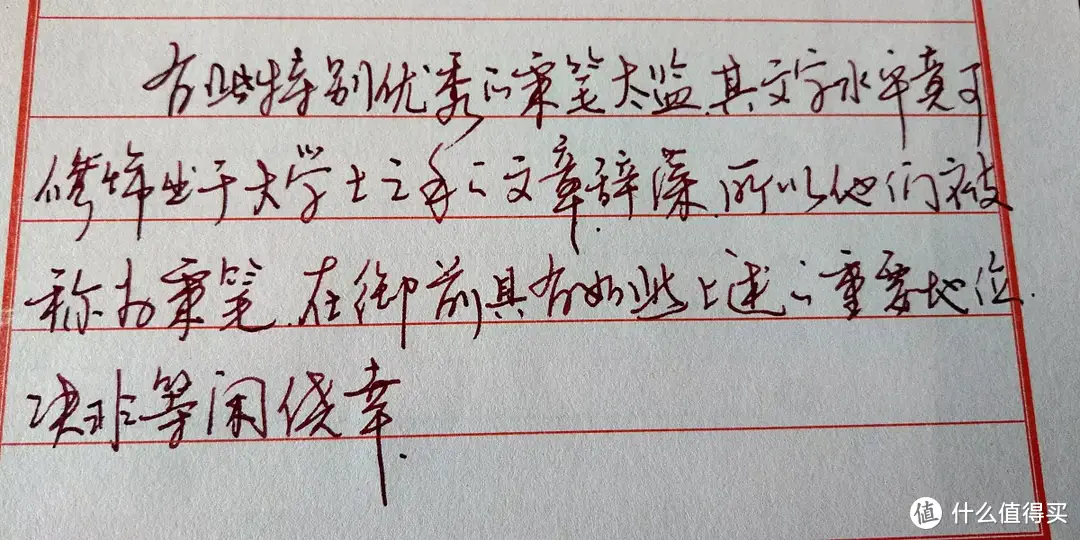 有些特别优秀的秉笔太监,其文字水平竟可
修饰出于大学士之手的文章辞藻.所以他们被
称为秉笔.在御前具有如此上述的重要地位.
决非等闲侥幸.
值 什么值得买